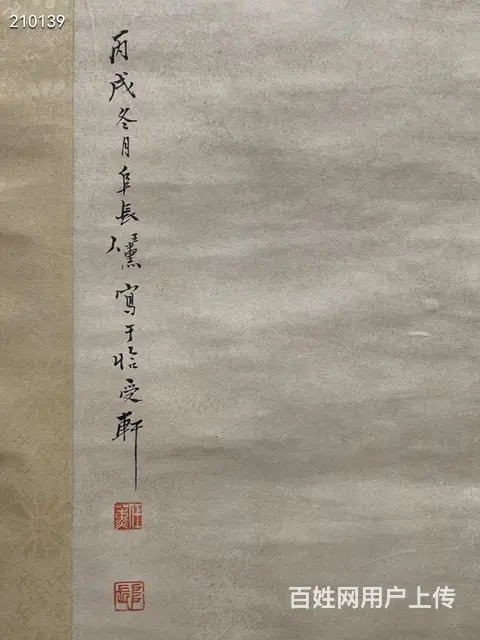 210139
丙戌冬月阜長
任薰寫于怡受軒
任薰
阜長
百姓网用户上传